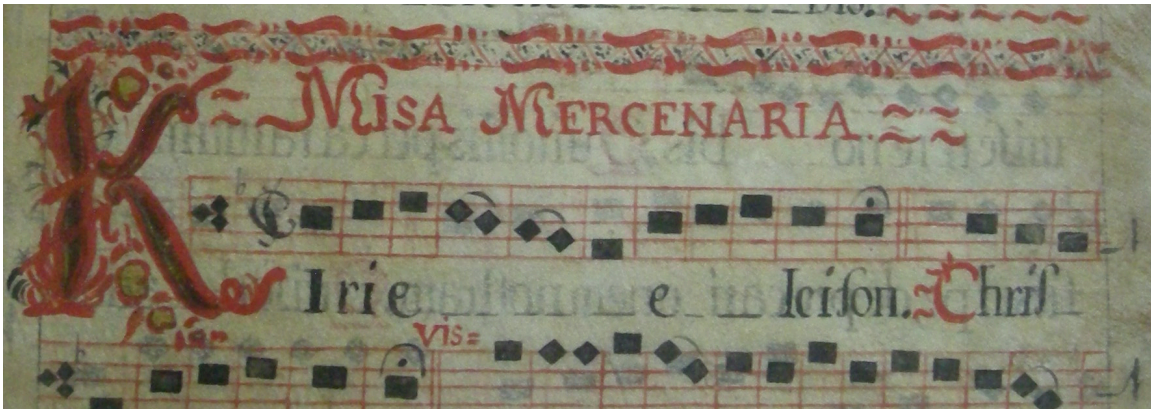 Misa Mercenaria.
KIrie e leiſon. Chriſ
Vis=